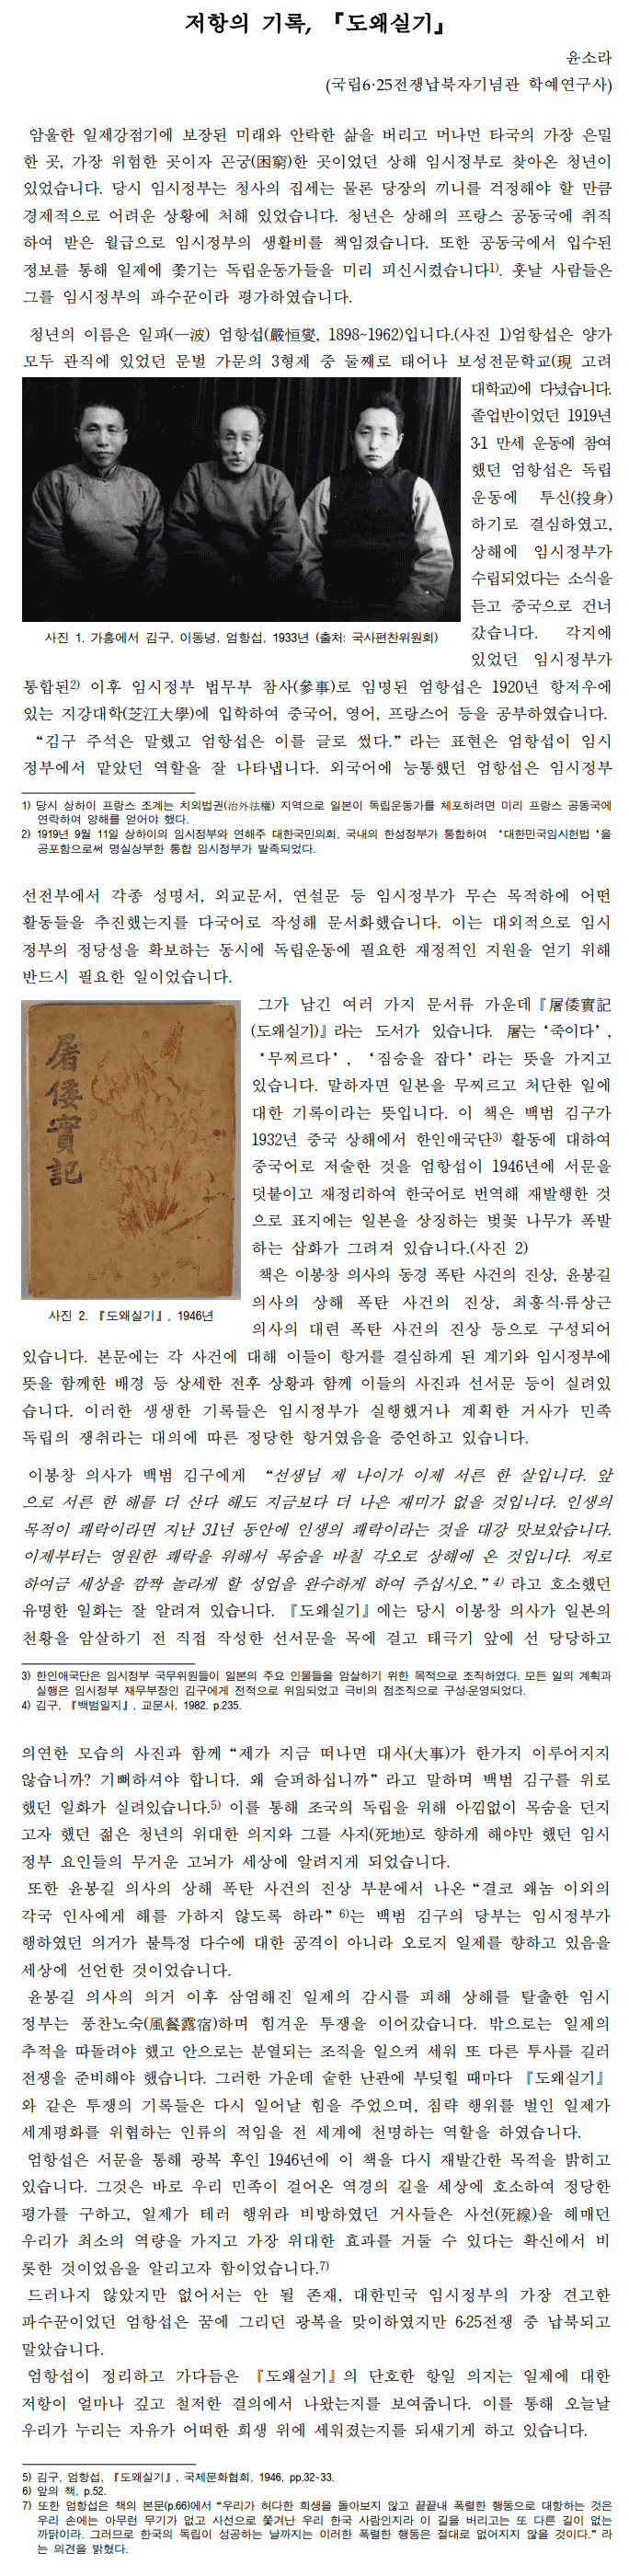 저항의 기록, 『도왜실기』
윤소라
(국립6·25전쟁납북자기념관 학예연구사)
암울한 일제강점기에 보장된 미래와 안락한 삶을 버리고 머나먼 타국의 가장 은밀
한 곳, 가장 위험한 곳이자 곤궁(困窮)한 곳이었던 상해 임시정부로 찾아온 청년이
있었습니다. 당시 임시정부는 청사의 집세는 물론 당장의 끼니를 걱정해야 할 만큼
경제적으로 어려운 상황에 처해 있었습니다. 청년은 상해의 프랑스 공동국에 취직
하여 받은 월급으로 임시정부의 생활비를 책임졌습니다. 또한 공동국에서 입수된
정보를 통해 일제에 쫓기는 독립운동가들을 미리 피신시켰습니다1). 훗날 사람들은
그를 임시정부의 파수꾼이라 평가하였습니다.
청년의 이름은 일파(一波) 엄항섭(嚴恒燮, 1898~1962)입니다.(사진 1)엄항섭은 양가
모두 관직에 있었던 문벌 가문의 3형제 중 둘째로 태어나 보성전문학교(現 고려
대학교)에 다녔습니다.
졸업반이었던 1919년
3·1 만세 운동에 참여
했던 엄항섭은 독립
운동에 투신(投身)
하기로 결심하였고,
상해에 임시정부가
수립되었다는 소식을
듣고 중국으로 건너
갔습니다. 각지에
있었던 임시정부가
사진 1. 가흥에서 김구, 이동녕, 엄항섭, 1933년 (출처: 국사편찬위원회)
통합된2) 이후 임시정부 법무부 참사(參事)로 임명된 엄항섭은 1920년 항저우에
있는 지강대학(芝江大學)에 입학하여 중국어, 영어, 프랑스어 등을 공부하였습니다.
“김구 주석은 말했고 엄항섭은 이를 글로 썼다.” 라는 표현은 엄항섭이 임시
정부에서 맡았던 역할을 잘 나타냅니다. 외국어에 능통했던 엄항섭은 임시정부
1) 당시 상하이 프랑스 조계는 치외법권(治外法權) 지역으로 일본이 독립운동가를 체포하려면 미리 프랑스 공동국에
연락하여 양해를 얻어야 했다.
2) 1919년 9월 11일 상하이의 임시정부와 연해주 대한국민의회, 국내의 한성정부가 통합하여 ‘대한민국임시헌법 ‘을
공포함으로써 명실상부한 통합 임시정부가 발족되었다.
선전부에서 각종 성명서, 외교문서, 연설문 등 임시정부가 무슨 목적하에 어떤
활동들을 추진했는지를 다국어로 작성해 문서화했습니다. 이는 대외적으로 임시
정부의 정당성을 확보하는 동시에 독립운동에 필요한 재정적인 지원을 얻기 위해
반드시 필요한 일이었습니다.
屠倭實記
그가 남긴 여러 가지 문서류 가운데『屠倭實記
(도왜실기)』라는 도서가 있습니다. 屠는 ‘죽이다’,
‘무찌르다’, ‘짐승을 잡다’ 라는 뜻을 가지고
있습니다. 말하자면 일본을 무찌르고 처단한 일에
대한 기록이라는 뜻입니다. 이 책은 백범 김구가
1932년 중국 상해에서 한인애국단3) 활동에 대하여
중국어로 저술한 것을 엄항섭이 1946년에 서문을
덧붙이고 재정리하여 한국어로 번역해 재발행한 것
으로 표지에는 일본을 상징하는 벚꽃 나무가 폭발
하는 삽화가 그려져 있습니다.(사진 2)
책은 이봉창 의사의 동경 폭탄 사건의 진상, 윤봉길
의사의 상해 폭탄 사건의 진상, 최흥식·류상근
의사의 대련 폭탄 사건의 진상 등으로 구성되어
사진 2. 『도왜실기』, 1946년
있습니다. 본문에는 각 사건에 대해 이들이 항거를 결심하게 된 계기와 임시정부에
뜻을 함께한 배경 등 상세한 전후 상황과 함께 이들의 사진과 선서문 등이 실려있
습니다. 이러한 생생한 기록들은 임시정부가 실행했거나 계획한 거사가 민족
독립의 쟁취라는 대의에 따른 정당한 항거였음을 증언하고 있습니다.
이봉창 의사가 백범 김구에게 “선생님 제 나이가 이제 서른 한 살입니다. 앞
으로 서른 한 해를 더 산다 해도 지금보다 더 나은 재미가 없을 것입니다. 인생의
목적이 쾌락이라면 지난 31년 동안에 인생의 쾌락이라는 것을 대강 맛보았습니다.
이제부터는 영원한 쾌락을 위해서 목숨을 바칠 각오로 상해에 온 것입니다. 저로
하여금 세상을 깜짝 놀라게 할 성업을 완수하게 하여 주십시오.” 4) 라고 호소했던
유명한 일화는 잘 알려져 있습니다. 『도왜실기』에는 당시 이봉창 의사가 일본의
천황을 암살하기 전 직접 작성한 선서문을 목에 걸고 태극기 앞에 선 당당하고
3) 한인애국단은 임시정부 국무위원들이 일본의 주요 인물들을 암살하기 위한 목적으로 조직하였다. 모든 일의 계획과
실행은 임시정부 재무부장인 김구에게 전적으로 위임되었고 극비의 점조직으로 구성·운영되었다.
4) 김구, 『백범일지』, 교문사, 1982. p.235.
의연한 모습의 사진과 함께 “제가 지금 떠나면 대사(大事)가 한가지 이루어지지
않습니까? 기뻐하셔야 합니다. 왜 슬퍼하십니까” 라고 말하며 백범 김구를 위로
했던 일화가 실려있습니다.5) 이를 통해 조국의 독립을 위해 아낌없이 목숨을 던지
고자 했던 젊은 청년의 위대한 의지와 그를 사지(死地)로 향하게 해야만 했던 임시
정부 요인들의 무거운 고뇌가 세상에 알려지게 되었습니다.
또한 윤봉길 의사의 상해 폭탄 사건의 진상 부분에서 나온 “결코 왜놈 이외의
각국 인사에게 해를 가하지 않도록 하라” 6)는 백범 김구의 당부는 임시정부가
행하였던 의거가 불특정 다수에 대한 공격이 아니라 오로지 일제를 향하고 있음을
세상에 선언한 것이었습니다.
윤봉길 의사의 의거 이후 삼엄해진 일제의 감시를 피해 상해를 탈출한 임시
정부는 풍찬노숙(風餐露宿)하며 힘겨운 투쟁을 이어갔습니다. 밖으로는 일제의
추적을 따돌려야 했고 안으로는 분열되는 조직을 일으켜 세워 또 다른 투사를 길러
전쟁을 준비해야 했습니다. 그러한 가운데 숱한 난관에 부딪힐 때마다 『도왜실기』
와 같은 투쟁의 기록들은 다시 일어날 힘을 주었으며, 침략 행위를 벌인 일제가
세계평화를 위협하는 인류의 적임을 전 세계에 천명하는 역할을 하였습니다.
엄항섭은 서문을 통해 광복 후인 1946년에 이 책을 다시 재발간한 목적을 밝히고
있습니다. 그것은 바로 우리 민족이 걸어온 역경의 길을 세상에 호소하여 정당한
평가를 구하고, 일제가 테러 행위라 비방하였던 거사들은 사선(死線)을 헤매던
우리가 최소의 역량을 가지고 가장 위대한 효과를 거둘 수 있다는 확신에서 비
롯한 것이었음을 알리고자 함이었습니다.7)
드러나지 않았지만 없어서는 안 될 존재, 대한민국 임시정부의 가장 견고한
파수꾼이었던 엄항섭은 꿈에 그리던 광복을 맞이하였지만 6·25전쟁 중 납북되고
말았습니다.
엄항섭이 정리하고 가다듬은 『도왜실기』의 단호한 항일 의지는 일제에 대한
저항이 얼마나 깊고 철저한 결의에서 나왔는지를 보여줍니다. 이를 통해 오늘날
우리가 누리는 자유가 어떠한 희생 위에 세워졌는지를 되새기게 하고 있습니다.
5) 김구, 엄항섭, 『도왜실기』, 국제문화협회, 1946, pp.32-33.
6) 앞의 책, p.52.
7) 또한 엄항섭은 책의 본문(p.66)에서 “우리가 허다한 희생을 돌아보지 않고 끝끝내 폭렬한 행동으로 대항하는 것은
우리 손에는 아무런 무기가 없고 사선으로 쫓겨난 우리 한국 사람인지라 이 길을 버리고는 또 다른 길이 없는
까닭이라. 그러므로 한국의 독립이 성공하는 날까지는 이러한 폭렬한 행동은 절대로 없어지지 않을 것이다.” 라
는 의견을 밝혔다.